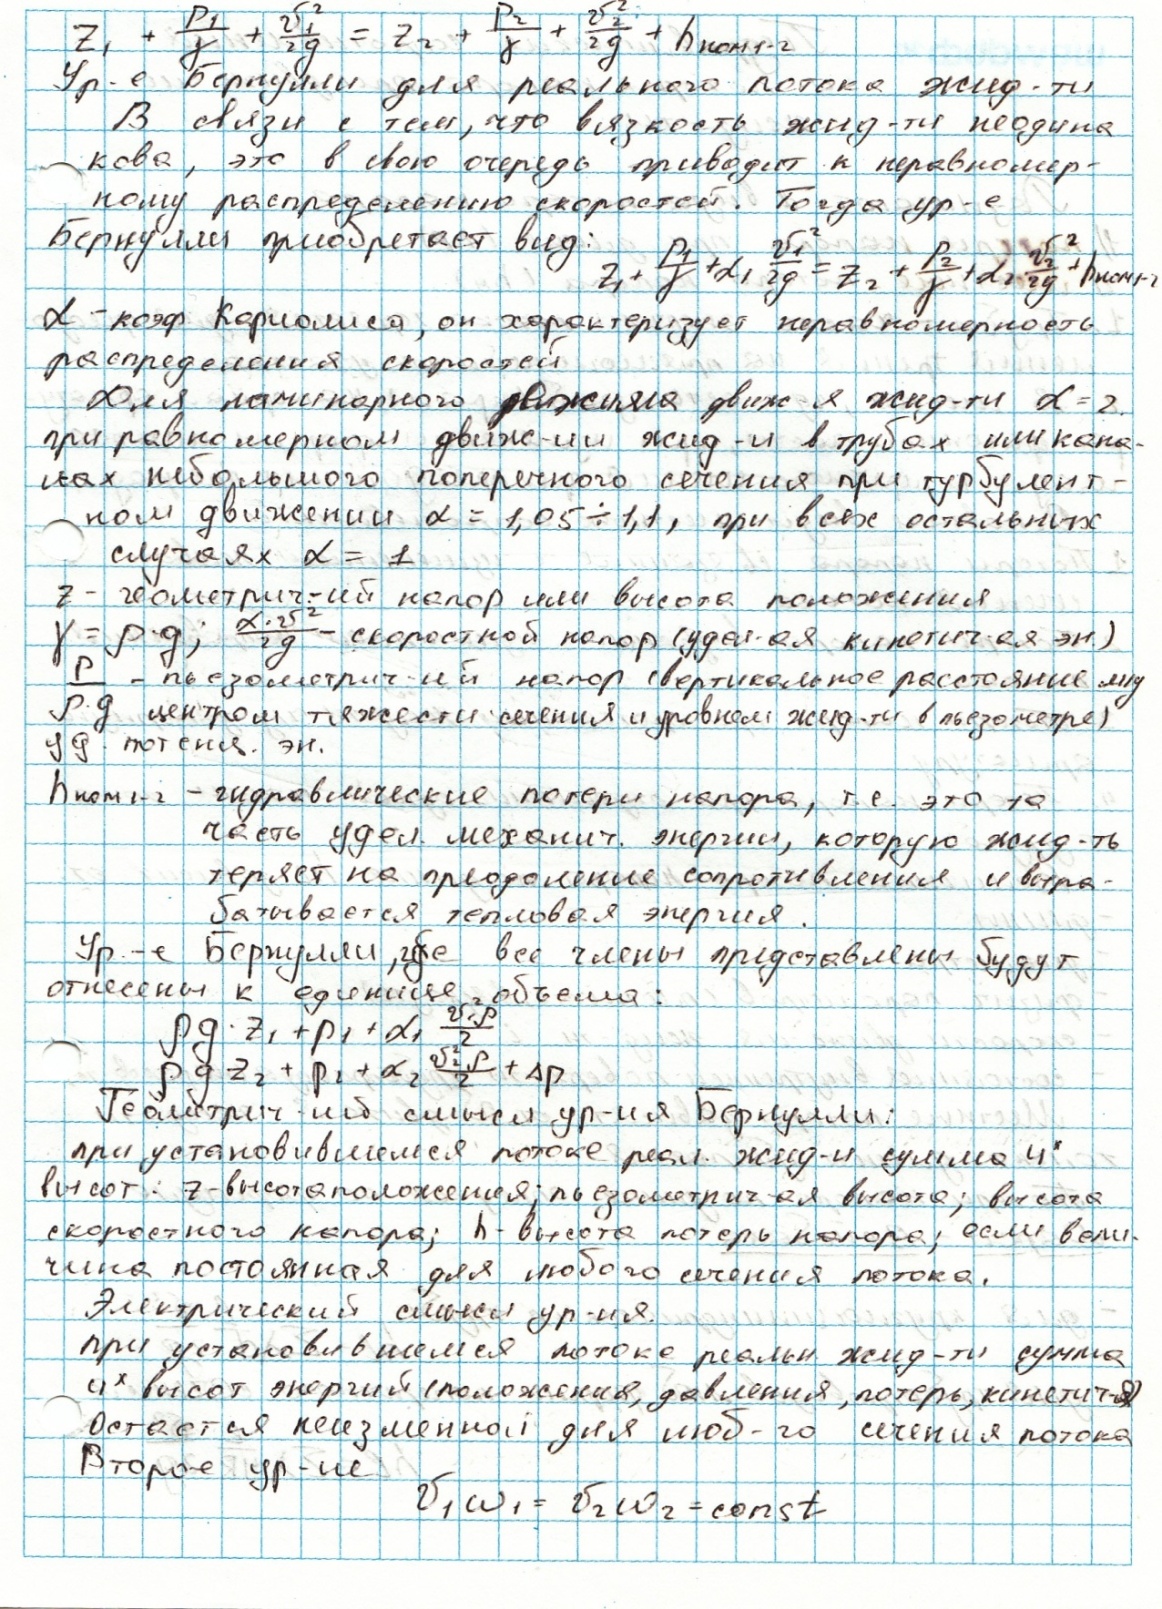 z₁ + p₁/γ + v₁²/2g = z₂ + p₂/γ + v₂²/2g + hпот1-2
Ур-е Бернулли для реального потока жид-ти
В связи с тем, что вязкость жид-ти неодина
кова, это в свою очередь приводит к неравномер-
ному распределению скоростей. Тогда ур-е
Бернулли приобретает вид:
z₁ + p₁/γ + α₁ v₁²/2g = z₂ + p₂/γ + α₂ v₂²/2g + hпот1-2
α - коэф Кориолиса, он характеризует неравномерность
распределения скоростей
Для ламинарного движ-я жид-ти α = 2.
при равномерном движ-ии жид-и в трубах или кана-
лах небольшого поперечного сечения при турбулент-
ном движении α = 1,05 ÷ 1,1, при всех остальных
случаях α = 1
z - геометрич-ий напор или высота положения
γ = ρ·g; α·v²/2g - скоростной напор (удел-ая кинетич-ая эн.)
p/ρ·g - пьезометрич-ий напор (вертикальное расстояние м/у
центром тяжести сечения и уровнем жид-ти в пьезометре)
уд. потенц. эн.
hпот1-2 - гидравлические потери напора, т.е. это та
часть удел. механич. энергии, которую жид-ть
теряет на преодоление сопротивления и выра-
батывается тепловая энергия.
Ур-е Бернулли, где все члены представлены будут
отнесены к единице объема:
ρg·z₁ + p₁ + α₁ v₁²ρ/2
ρg z₂ + p₂ + α₂ v₂²ρ/2 + Δp
Геометрич-ий смысл ур-ия Бернулли:
при установившемся потоке реал. жид-и сумма 4ˣ
высот: z-высота положения; пьезометрич-ая высота; высота
скоростного напора; h-высота потерь напора; если вели-
чина постоянная для любого сечения потока.
Электрический смысл ур-ия.
при установившемся потоке реальн жид-ти сумма
4ˣ высот энергий (положения, давления, потерь, кинетич-я)
остается неизменной для люб-го сечения потока
Второе ур-ие
v₁ω₁ = v₂ω₂ = const